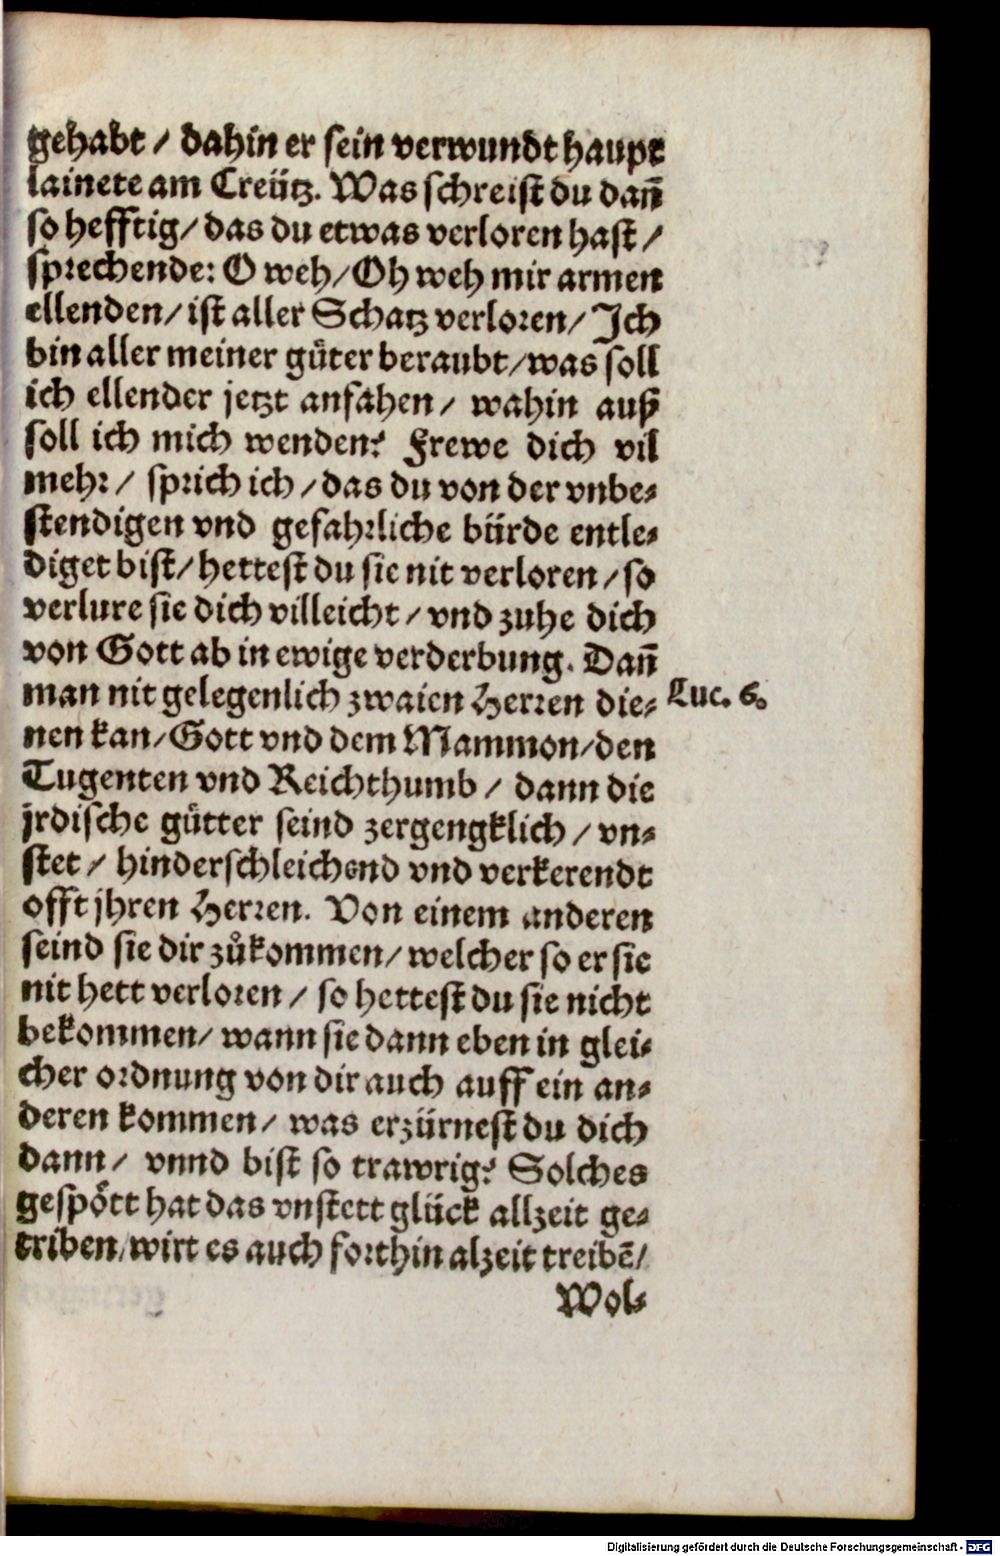 gehabt / dahin er sein verwundt haupt
lainete am Creütz. Was schreist du dañ
so hefftig/ das du etwas verloren hast /
sprechende: O weh/ Oh weh mir armen
ellenden/ ist aller Schatz verloren/ Ich
bin aller meiner guͤter beraubt/ was soll
ich ellender jetzt anfahen/ wahin auß
soll ich mich wenden? Frewe dich vil
mehr/ sprich ich / das du von der vnbe-
stendigen vnd gefahrliche bürde entle-
diget bist/ hettest du sie nit verloren / so
verlure sie dich villeicht / vnd zuhe dich
von Gott ab in ewige verderbung. Dañ
man nit gelegenlich zwaien Herren die-
Luc. 6.
nen kan/ Gott vnd dem Mammon/ den
Tugenten vnd Reichthumb / dann die
jrdische guͤtter seind zergengklich / vn-
stet / hinderschleichend vnd verkerendt
offt jhren Herren. Von einem anderen
seind sie dir zuͦkommen/ welcher so er sie
nit hett verloren / so hettest du sie nicht
bekommen/ wann sie dann eben in glei-
cher ordnung von dir auch auff ein an-
deren kommen/ was erzürnest du dich
dann/ vnnd bist so trawrig? Solches
gespoͤtt hat das vnstett glück allzeit ge-
triben/ wirt es auch forthin alzeit treibē/
Wol-
Digitalisierung gefördert durch die Deutsche Forschungsgemeinschaft - DFG